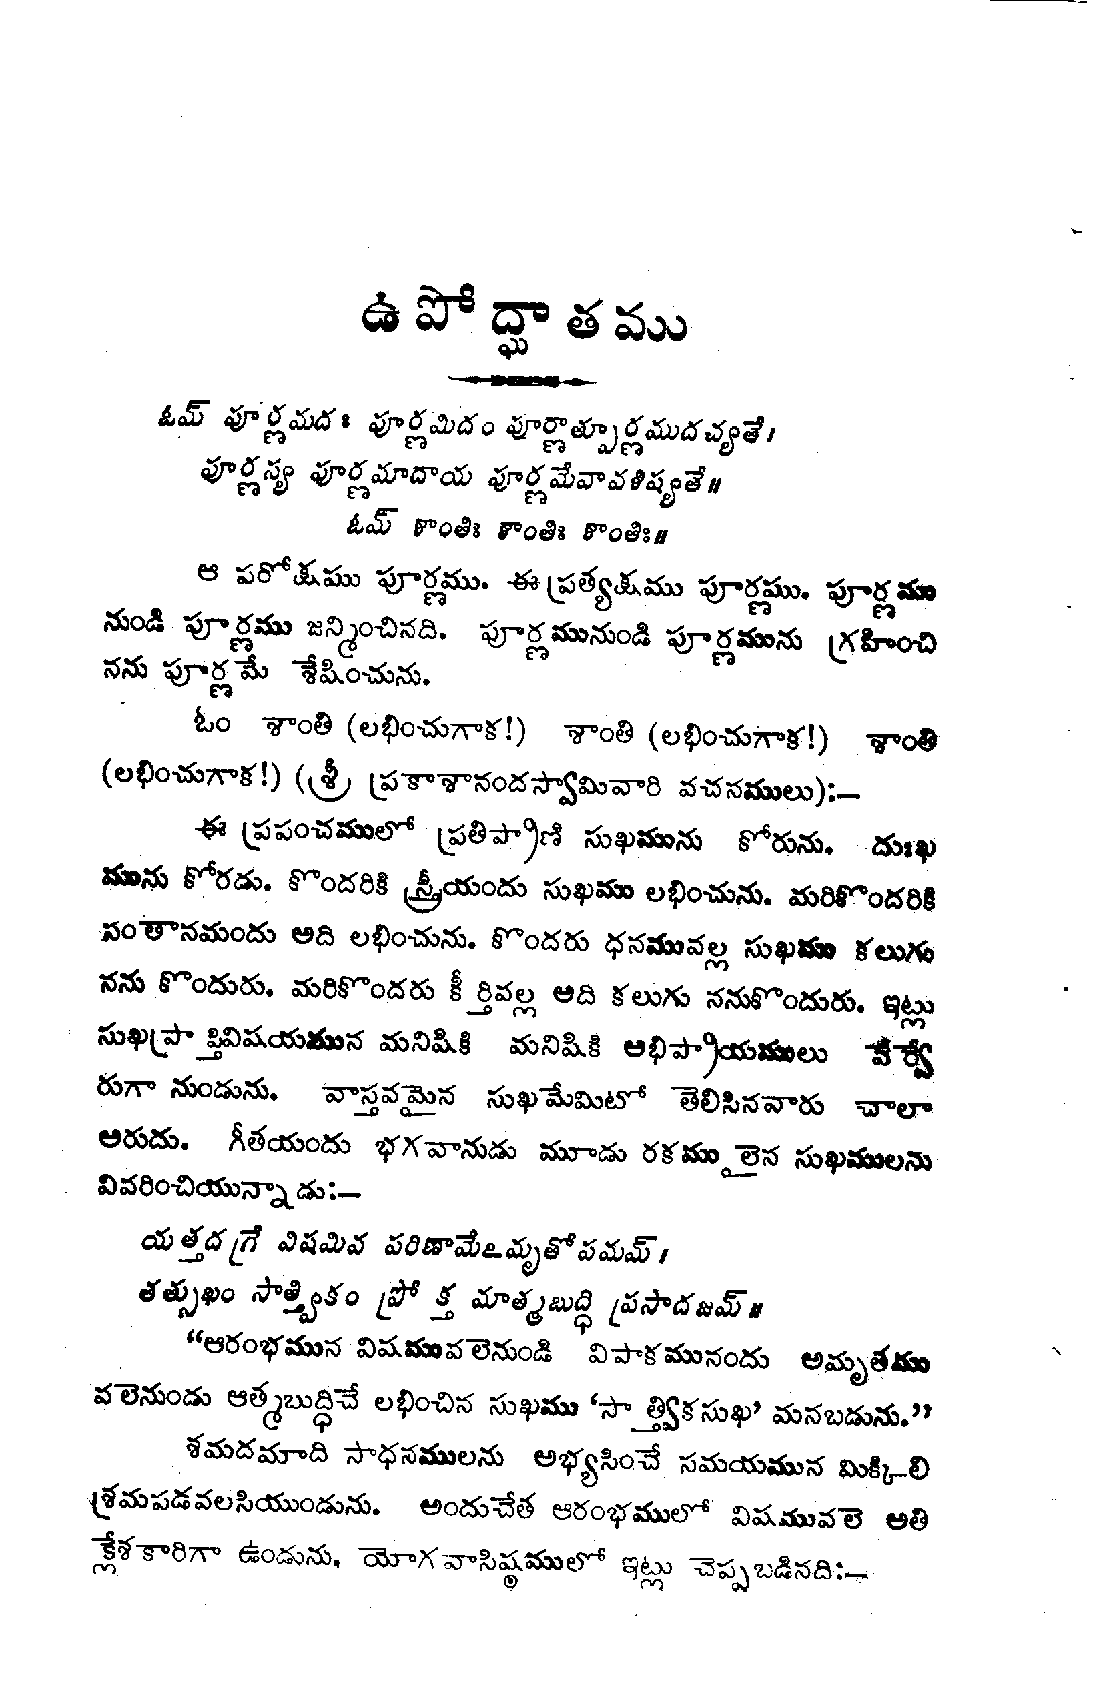 ఉపోద్ఘాతము
ఓమ్ పూర్ణమదః పూర్ణమిదం పూర్ణాత్పూర్ణముదచ్యతే।
పూర్ణస్య పూర్ణమాదాయ పూర్ణమేవావశిష్యతే॥
ఓమ్ శాంతిః శాంతిః శాంతిః॥
ఆ పరోక్షము పూర్ణము. ఈ ప్రత్యక్షము పూర్ణము. పూర్ణము
నుండి పూర్ణము జన్మించినది. పూర్ణమునుండి పూర్ణమును గ్రహించి
నను పూర్ణమే శేషించును.
ఓం శాంతి (లభించుగాక!) శాంతి (లభించుగాక!) శాంతి
(లభించుగాక!) (శ్రీ ప్రకాశానందస్వామివారి వచనములు):—
ఈ ప్రపంచములో ప్రతిప్రాణి సుఖమును కోరును. దుఃఖ
మును కోరడు. కొందరికి స్త్రీయందు సుఖము లభించును. మరికొందరికి
సంతానమందు అది లభించును. కొందరు ధనమువల్ల సుఖము కలుగు
నను కొందురు. మరికొందరు కీర్తివల్ల అది కలుగు ననుకొందురు. ఇట్లు
సుఖప్రాప్తివిషయమున మనిషికి మనిషికి అభిప్రాయములు వేర్వే
రుగా నుండును. వాస్తవమైన సుఖమేమిటో తెలిసినవారు చాలా
అరుదు. గీతయందు భగవానుడు మూడు రకమ్ములైన సుఖములను
వివరించియున్నాడు:—
యత్తదగ్రే విషమివ పరిణామేఽమృతోపమమ్।
తత్సుఖం సాత్త్వికం ప్రోక్త మాత్మబుద్ధి ప్రసాదజమ్॥
“ఆరంభమున విషమువలెనుండి విపాకమునందు అమృతము
వలెనుండు ఆత్మబుద్ధిచే లభించిన సుఖము ‘సాత్త్వికసుఖ’ మనబడును.”
శమదమాది సాధనములను అభ్యసించే సమయమున మిక్కిలి
శ్రమపడవలసియుండును. అందుచేత ఆరంభములో విషమువలె అతి
క్లేశకారిగా ఉండును. యోగవాసిష్ఠములో ఇట్లు చెప్పబడినది:—